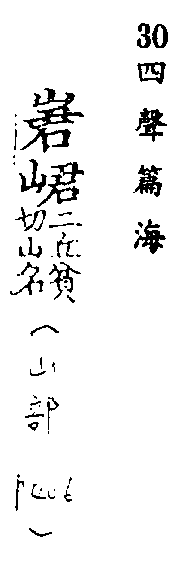 30四聲篇海
峮二丘貧切山名(山部 )